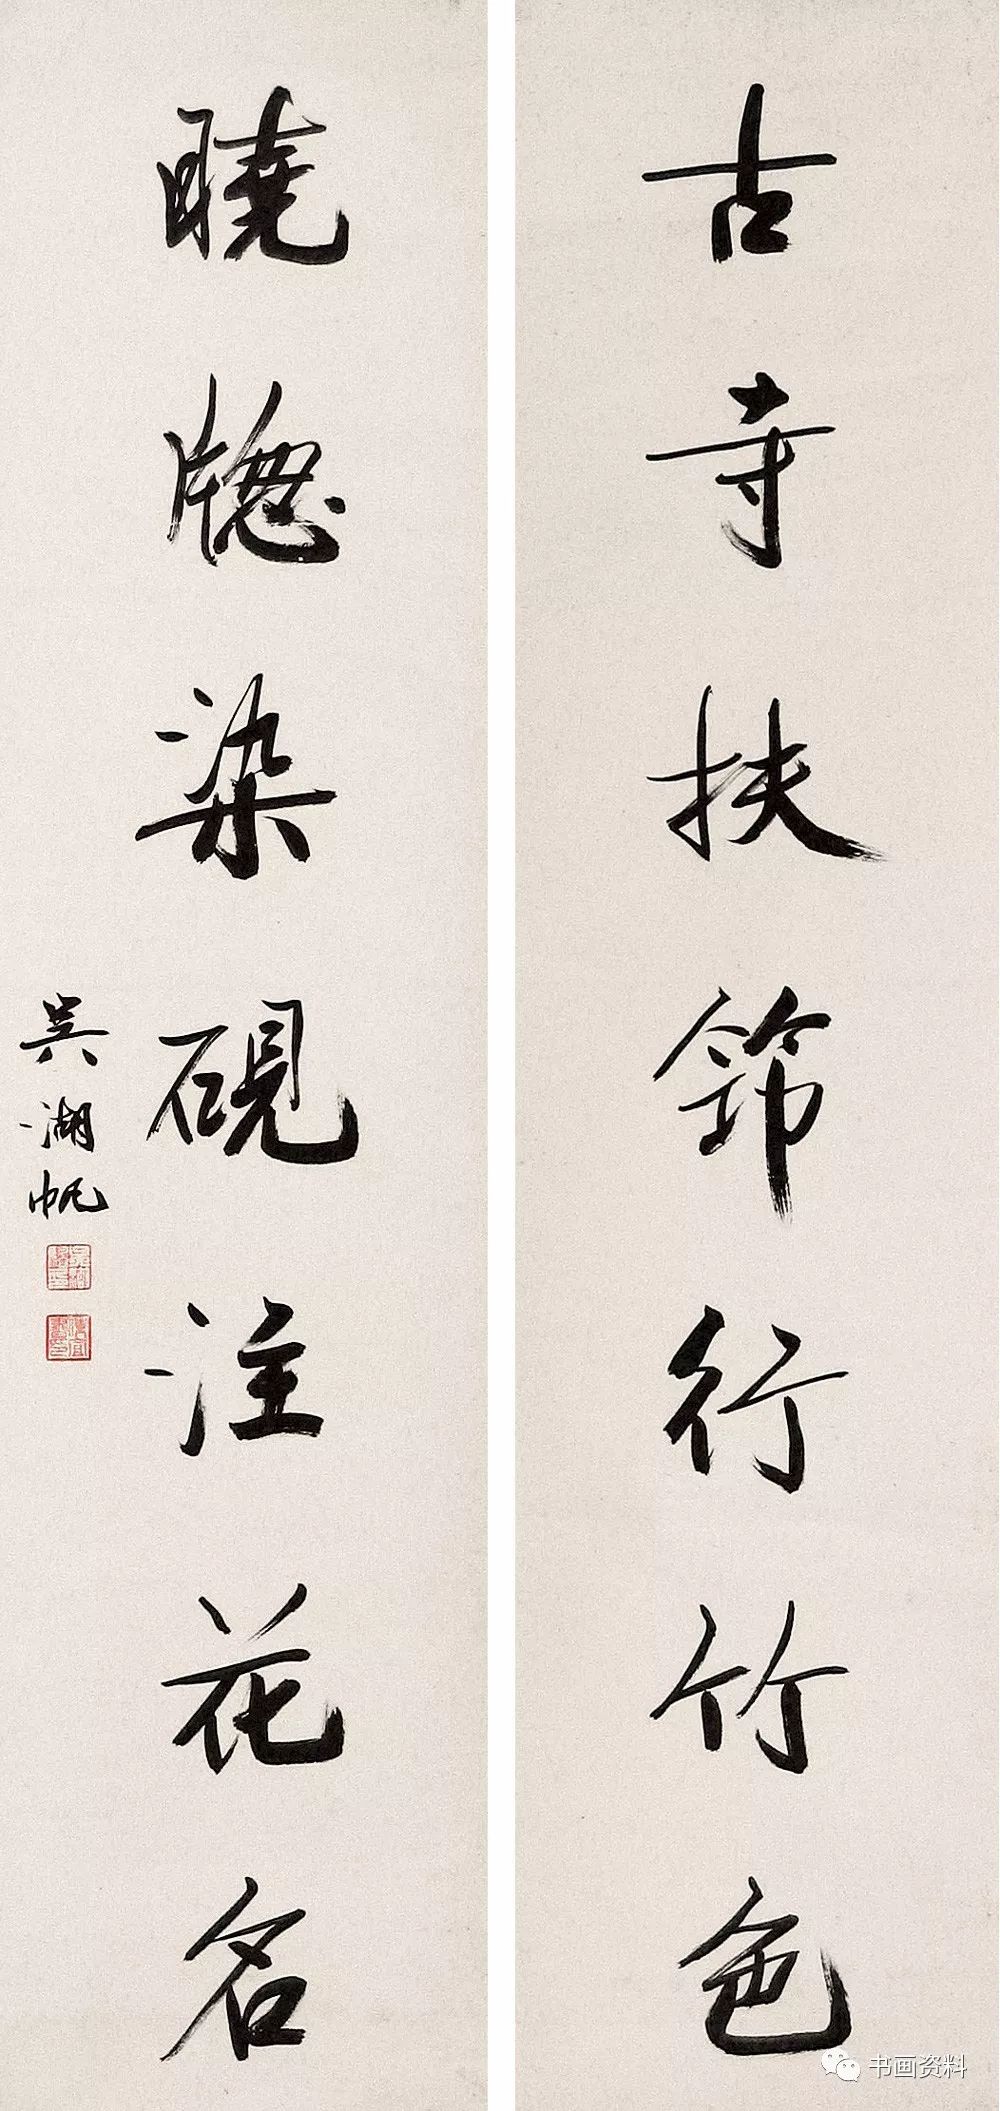 古寺扶筇行竹色
曉牕染硯注花名
吳湖帆
书画资料